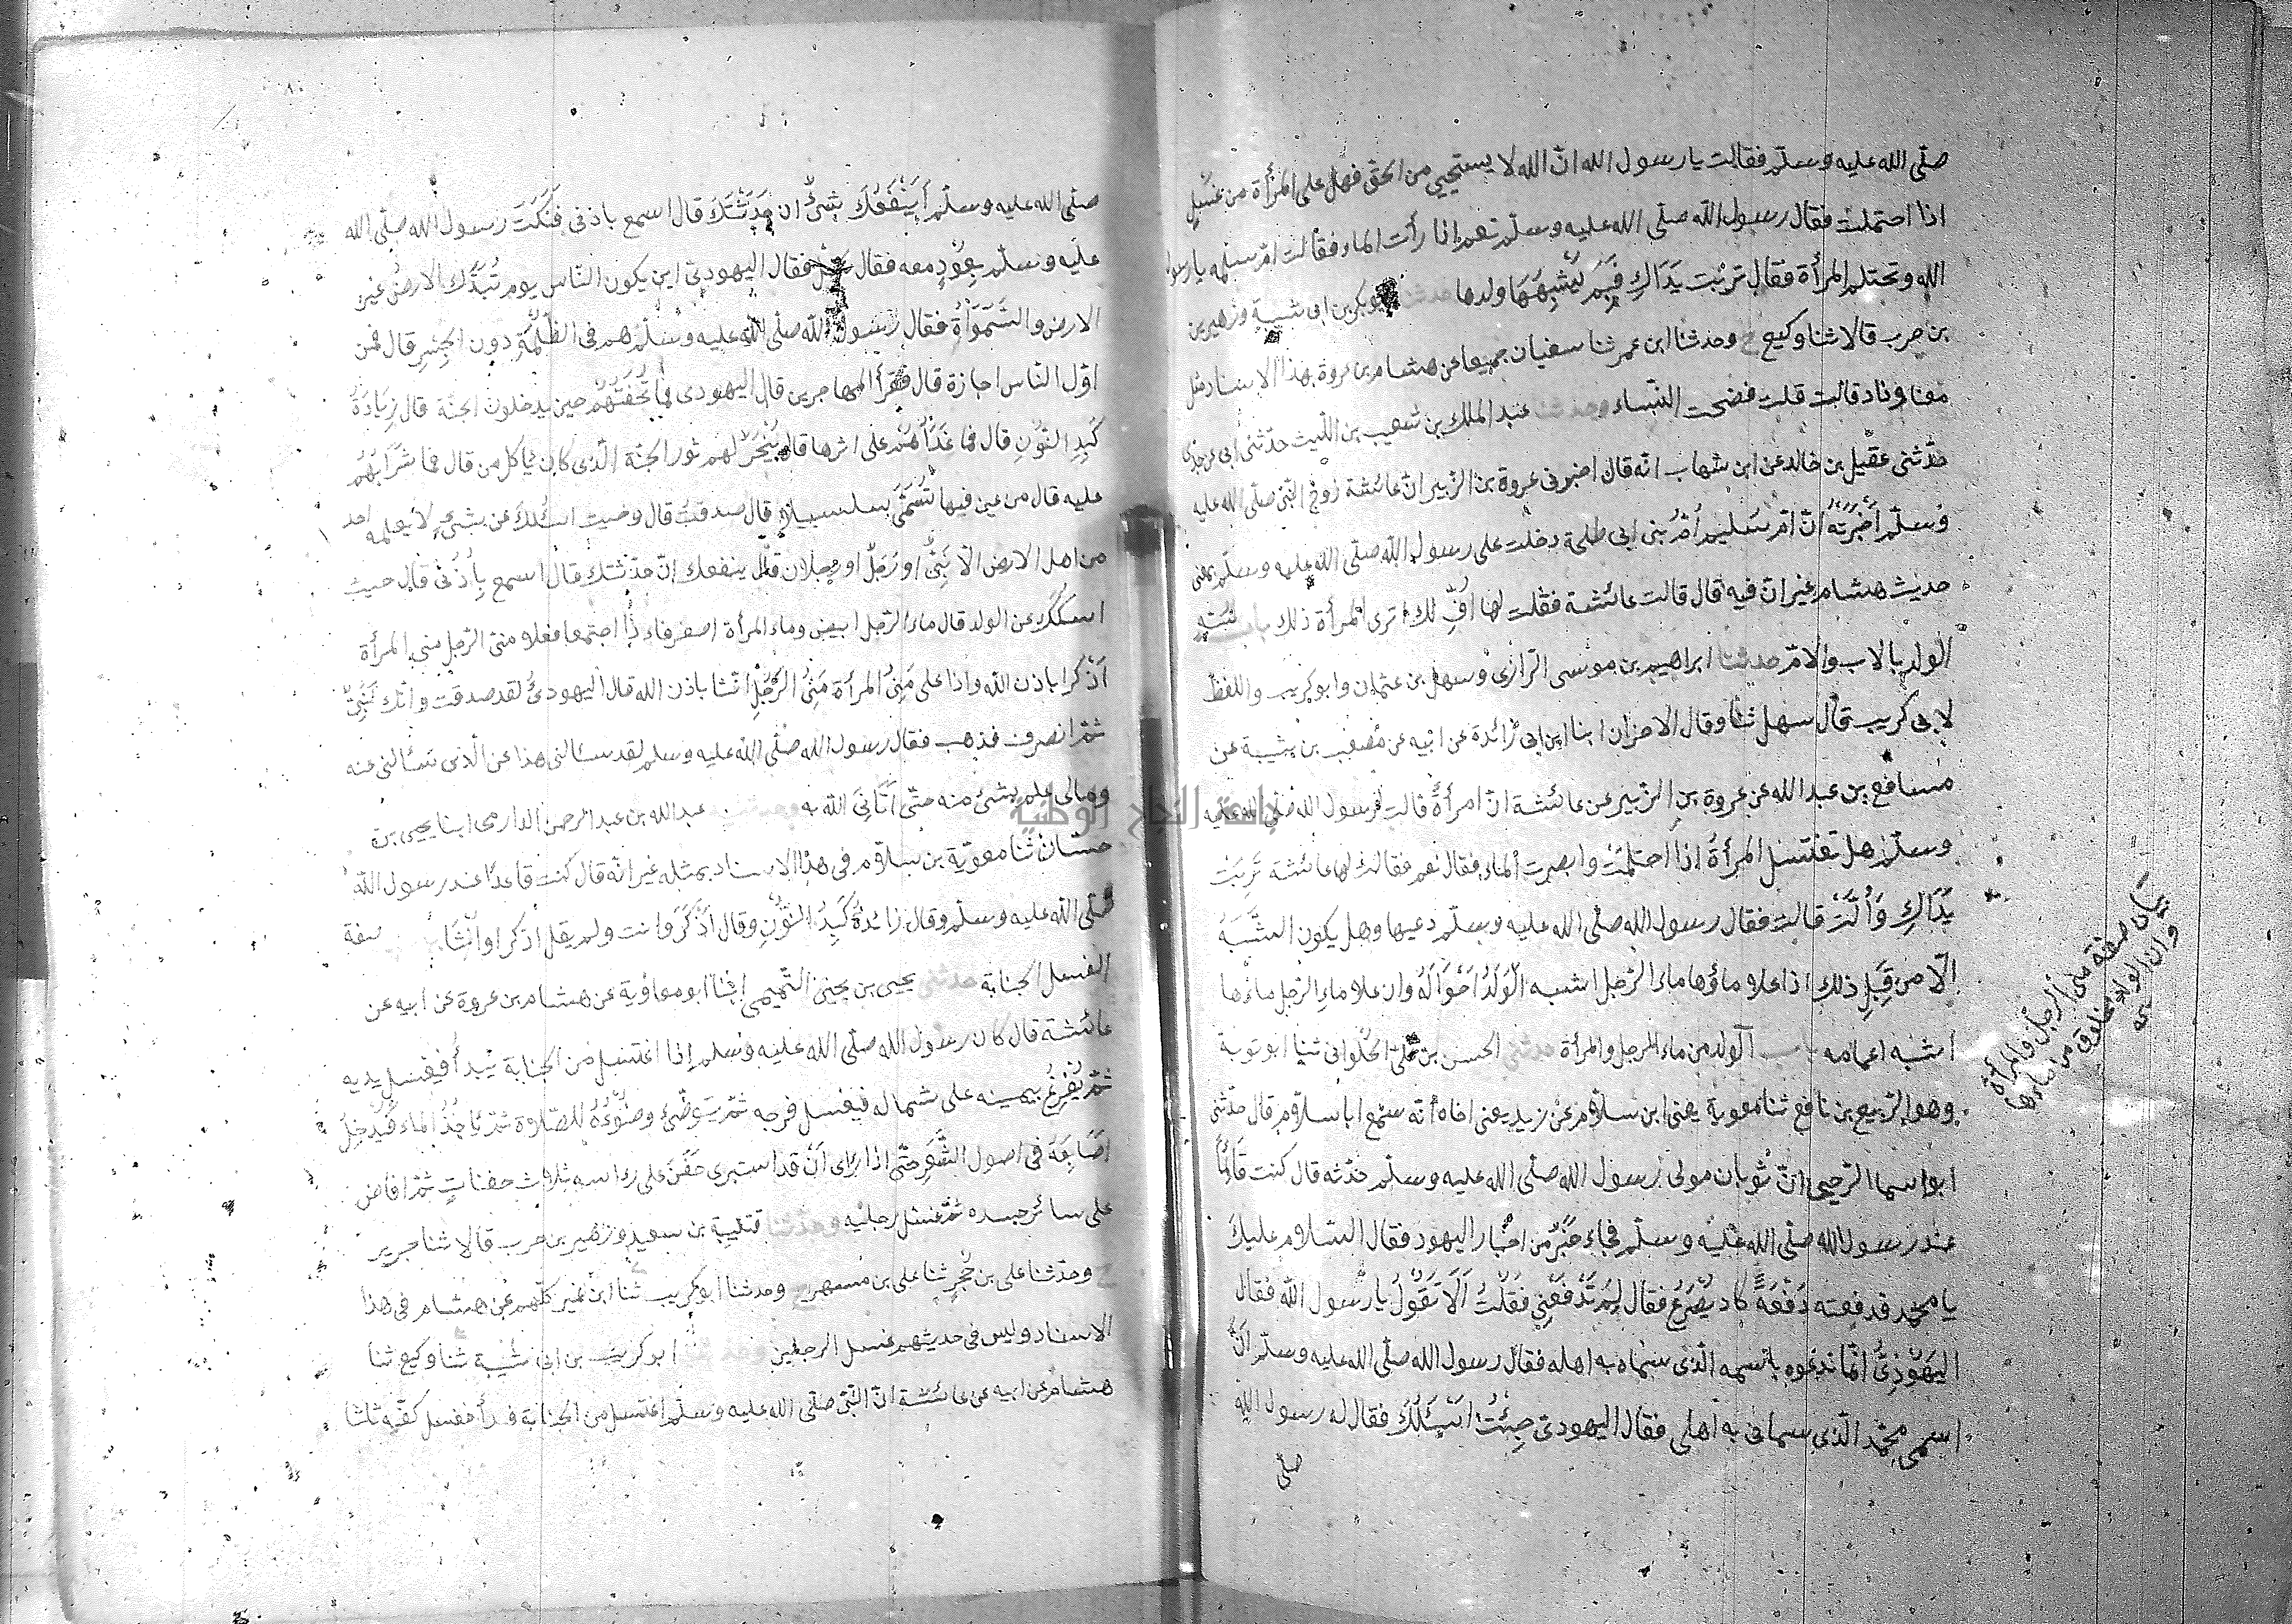 صلّى الله عليه وسلّم فقالت يا رسول الله انّ الله لا يستحيي من الحق فهل على المرأة من غسل
اذا احتملت فقال رسول الله صلّى الله عليه وسلّم نعم اذا رأت الماء فقالت امّ سلمة يا رسول
الله وتحتلم المرأة فقال تربت يَدَاكِ فَبِمَ يُشْبِهُهَا ولدها حدثنا ابو بكر بن ابى شيبة وزهير بن
بن حرب قالا ثنا وكيع ح وحدثنا ابن عمر ثنا سفيان جميعا عن هشام بن عروة بهذا الاسناد مثل
معناه وزاد قالت قلت فضحت النّساء وحدثنا عبد الملك بن شعيب بن اللّيث حدّثنى ابى عن جدّى
حدّثنى عقيل بن خالد عن ابن شهاب انّه قال اخبرنى عروة بن الزّبير انّ عائشة زوج النّبى صلّى الله عليه
وسلّم اَخْبَرَتْهُ انّ امّ سليم اُمّ بنى ابى طلحة دخلت على رسول الله صلّى الله عليه وسلّم بمعنى
حديث هشام غير انّ فيه قال قالت عائشة فقلت لها افٍّ لك اترى المرأة ذلك باب شبه
الولد بالاب والامّ حدثنا ابراهيم بن موسى الرّازى وسهل بن عثمان وابو كريب واللّفظ
لابى كريب قال سهل ثنا وقال الاخران انبا ابن ابى زائدة عن ابيه عن مصعب بن شيبة عن
مسافع بن عبد الله عن عروة بن الزّبير عن عائشة انّ امرأةً قالت لرسول الله صلّى الله عليه
وسلّم هل تغتسل المرأةُ اذا احتلمت وابصرت الماء فقال نعم فقالت لها عائشة تَرِبَتْ
يَدَاكِ وَأُلَّتْ قالت فقال رسول الله صلّى الله عليه وسلّم دعيها وهل يكون الشَّبَهُ
الّا من قِبَلِ ذلك اذا علا ماؤها ماء الرّجل اشبه الْوَلَدُ اَخْوَالَهُ وان علا ماء الرّجل ماءها
اشبه اعمامه باب الولد من ماء الرجل والمرأة حدثنى الحسن بن علىّ الحُلْوانى ثنا ابو توبة
وهو الرّبيع بن نافع ثنا معوية يعنى ابن سلّام عن زيد يعنى اخاه أنّه سمع ابا سلّام قال حدّثنى
ابو اسما الرّحبى انّ ثوبان مولى رسول الله صلّى الله عليه وسلّم حدّثه قال كنت قَائِمًا
عند رسول الله صلّى الله عليه وسلّم فجاء حَبْرٌ من احبار اليهود فقال السّلام عليك
يا محمّد فدفعته دَفْعَةً كاد يُصْرَعُ فقال لِمَ تَدْفَعُنِى فَقُلْتُ اَلَا تَقُولُ يا رسول الله فقال
اليَهُودِىُّ انّما ندعوه باسمه الّذى سمّاه به اهله فقال رسول الله صلّى الله عليه وسلّم انّ
اسمى محمّد الّذى سمانى به اهلى فقال اليهودى جِئْتُ اَسْئَلُكَ فقال له رسول الله
صلّى
بيان صفة منى الرّجل والمرأة
وان الولد مخلوق من ماءها
صلّى الله عليه وسلّم أَيَنْفَعُكَ شَىْءٌ ان حَدَّثْتُكَ قال اسمع باذنى فَنَكَتَ رسول الله صلّى الله
عليه وسلّم بِعُودٍ معه فقال سل فقال اليهودى اين يكون النّاس يوم تُبَدَّل الارض غير
الارض والسَّمٰوَاتُ فقال رسول الله صلّى الله عليه وسلّم هم فى الظُّلْمَةِ دون الجِسْرِ قال فمن
اوّل النّاس اجازة قال فقراْ المهاجرين قال اليهودى فما تُحْفَتُهُمْ حين يدخلون الجنّة قال زِيَادَةُ
كَبِدِ النُّونِ قال فما غَدَاؤُهُمْ على اثرها قال يُنْحَرُ لهم ثور الجنّة الّذى كان يأكل من قال فما شَرَابُهُمْ
عليه قال من عين فيها تُسَمَّى سلسبيلا قال صدقت قال وجئت اسئلك عن شىءٍ لا يعلمه احد
من اهل الارض الّا نَبِىٌّ او رَجُلٌ او رجلان قال ينفعك ان حدّثتك قال اسمع بِأُذُنى قال جيت
اسئلك عن الولد قال ماء الرّجل ابيض وماء المرأة اصفر فاذا اجتمعا فعلا منىّ الرّجل منىّ المرأة
اَذْكَرا باذن الله واذا على مَنِىُّ المرأة مَنِىَّ الرَّجُلِ انثا باذن الله قال اليهودىُّ لقد صدقت وانّك لَنَبِىٌّ
ثمّ انصرف فذهب فقال رسول الله صلّى الله عليه وسلم لقد سئالنى هذا عن الّذى سئالنى عنه
ومالى علم بشئ منه حتّى اَتَانِىَ الله به وحدثنيه عبد الله بن عبد الرحمن الدارمى انبا يحيى بن
حسّان ثنا معوية بن سلاّم فى هذا الاسناد بمثله غير انّه قال كنت قاعدًا عند رسول الله
صلّى الله عليه وسلّم وقال زائدةُ كَبِدِ النُّونِ وقال اَذْكَرَ وانث ولم يقل اذكرا وانثا صفة
الغسل الجنابة حدثنى يحيى بن يحيى التّميمى انبا ابو معاوية عن هشام بن عروة عن ابيه عن
عائشة قال كان رسول الله صلّى الله عليه وسلم إذا اغتسل من الجنابة يَبْدأ فيغسل يديه
ثمّ يُفْرِغُ بيمينه على شماله فيغسل فرجه ثمّ يتوضّئ وضُوْءَهُ للصّلاوة ثمّ يَاخُذُ الماء فَيُدْخِلُ
اصَابِعَهُ فى اصول الشَّعَرِ حتّى اذا راى اَنْ قد استبرى حَفَنَ على راسه ثلاث حفناتٍ ثمّ افاض
على سائر جسده ثمّ غسل رجليه وحدّثنا قتيبة بن سعيد وزهير بن حرب قالا ثنا جرير
ح وحدّثنا على بن حُجْرٍ ثنا على بن مسهر ح وحدثنا ابو كريب ثنا ابن نمير كلّهم عن هشام فى هذا
الاسناد وليس فى حديثهم غسل الرجلين وحدثنا ابو كريب بن ابى شيبة ثنا وكيع ثنا
هشام عن ابيه عن عائشة انّ النّبىّ صلّى الله عليه وسلّم اغتسل من الجنابة فبدأ فغسل كفّيه ثلثا
جامعة النجاح الوطنية